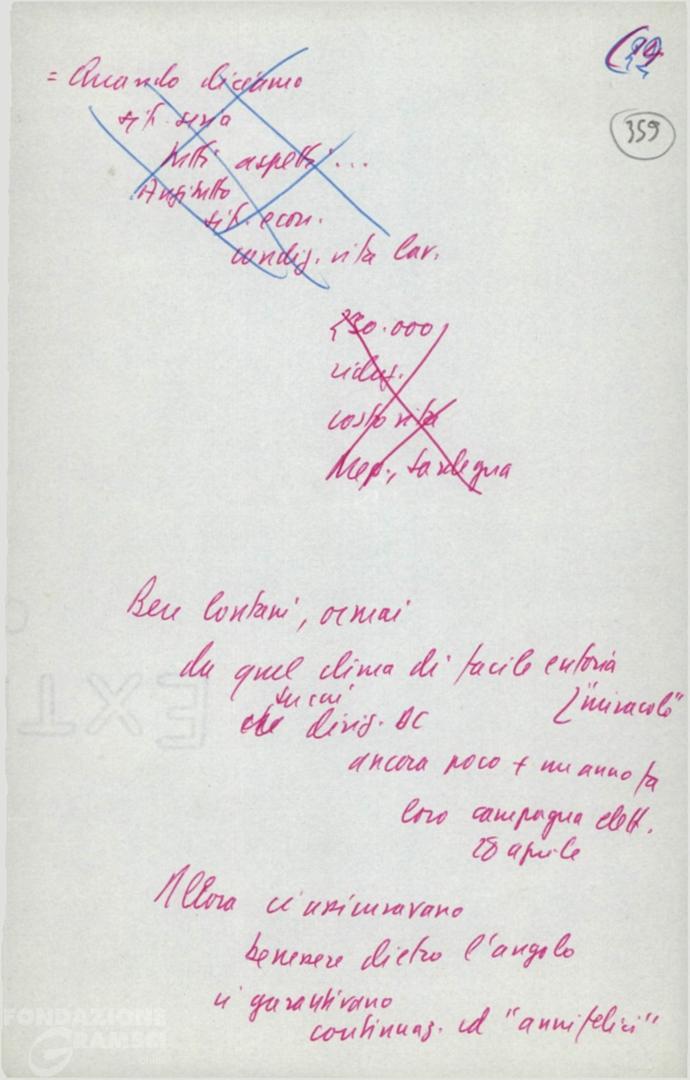 359
= Quando diciamo
sit. seria
tutti aspetti...
Anzitutto
sit. econ.
condiz. vita lav.
230.000
riduz.
costo vita
Mep., Sardegna
Ben lontani, ormai
da quel clima di facile euforia
["miracolo"
che su cui dirig. DC
ancora poco + un anno fa
loro campagna elett.
28 aprile
Allora ci assicuravano
benessere dietro l'angolo
ci garantivano
continuaz. ed "anni felici"
EXT
FONDAZIONE
GRAMSCI